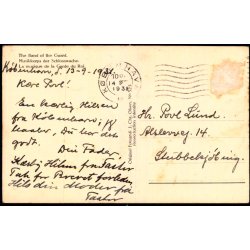 The Band of the Guard.
Musikkorps der Schlosswache.
La musique de la Garde du Roi.
København, d. 13-9-1931.
Kære Poul!
En kærlig Hilsen
fra København; jeg
haaber, Du har det
godt.
Din Fader.
Kærlig Hilsen fra Faster
Tak for Brevet forleden
Hils din Moder fra
Faster
KØBENHAVN
1931
Hr. Poul Lund.
14.
Stubbekøbing.